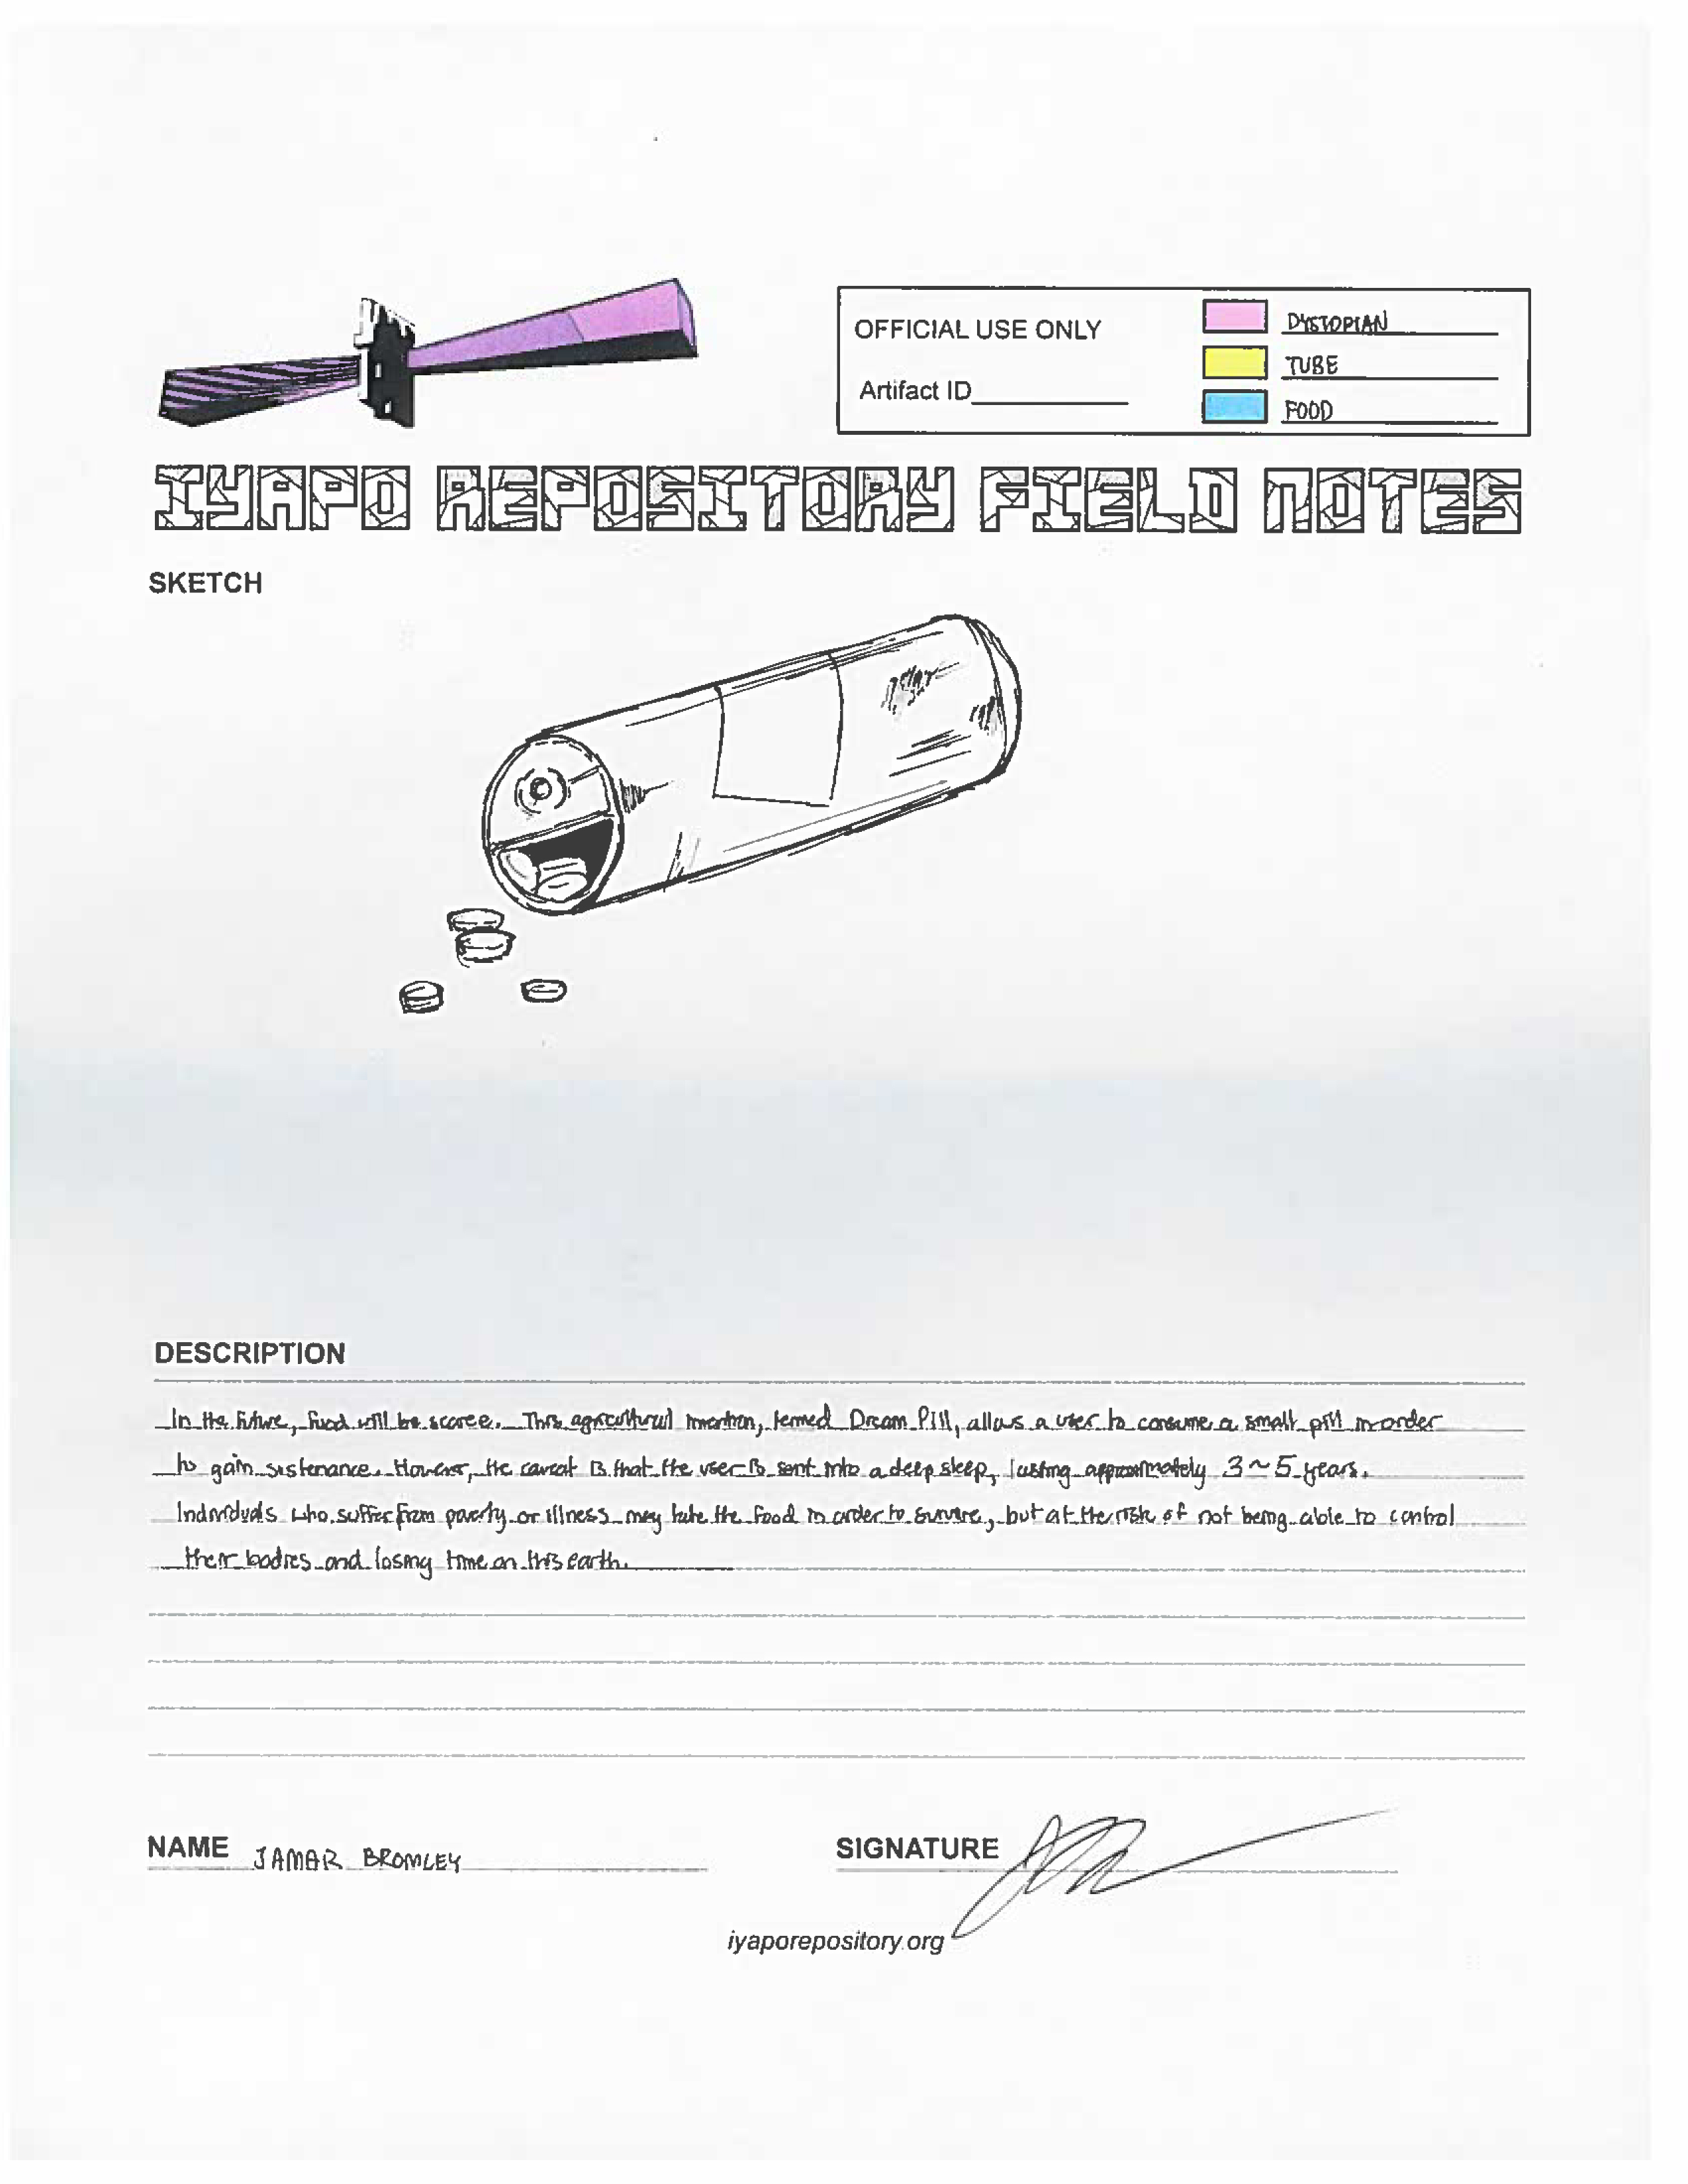 OFFICIAL USE ONLY
Artifact ID
DYSTOPIAN
TUBE
FOOD
IYAPO REPOSITORY FIELD NOTES
SKETCH
DESCRIPTION
In the future, food will be scarce. This agricultural invention, termed Dream Pill, allows a user to consume a small pill in order
to gain sistenance. However, the caveat is that the user is sent into a deep sleep, lasting approximately 3~5 years.
Individuals who suffer from poverty or illness may take the food in order to survive, but at the risk of not being able to control
their bodies and losing time on this earth.
NAME JAMAR BROMLEY
SIGNATURE
iyaporepository.org